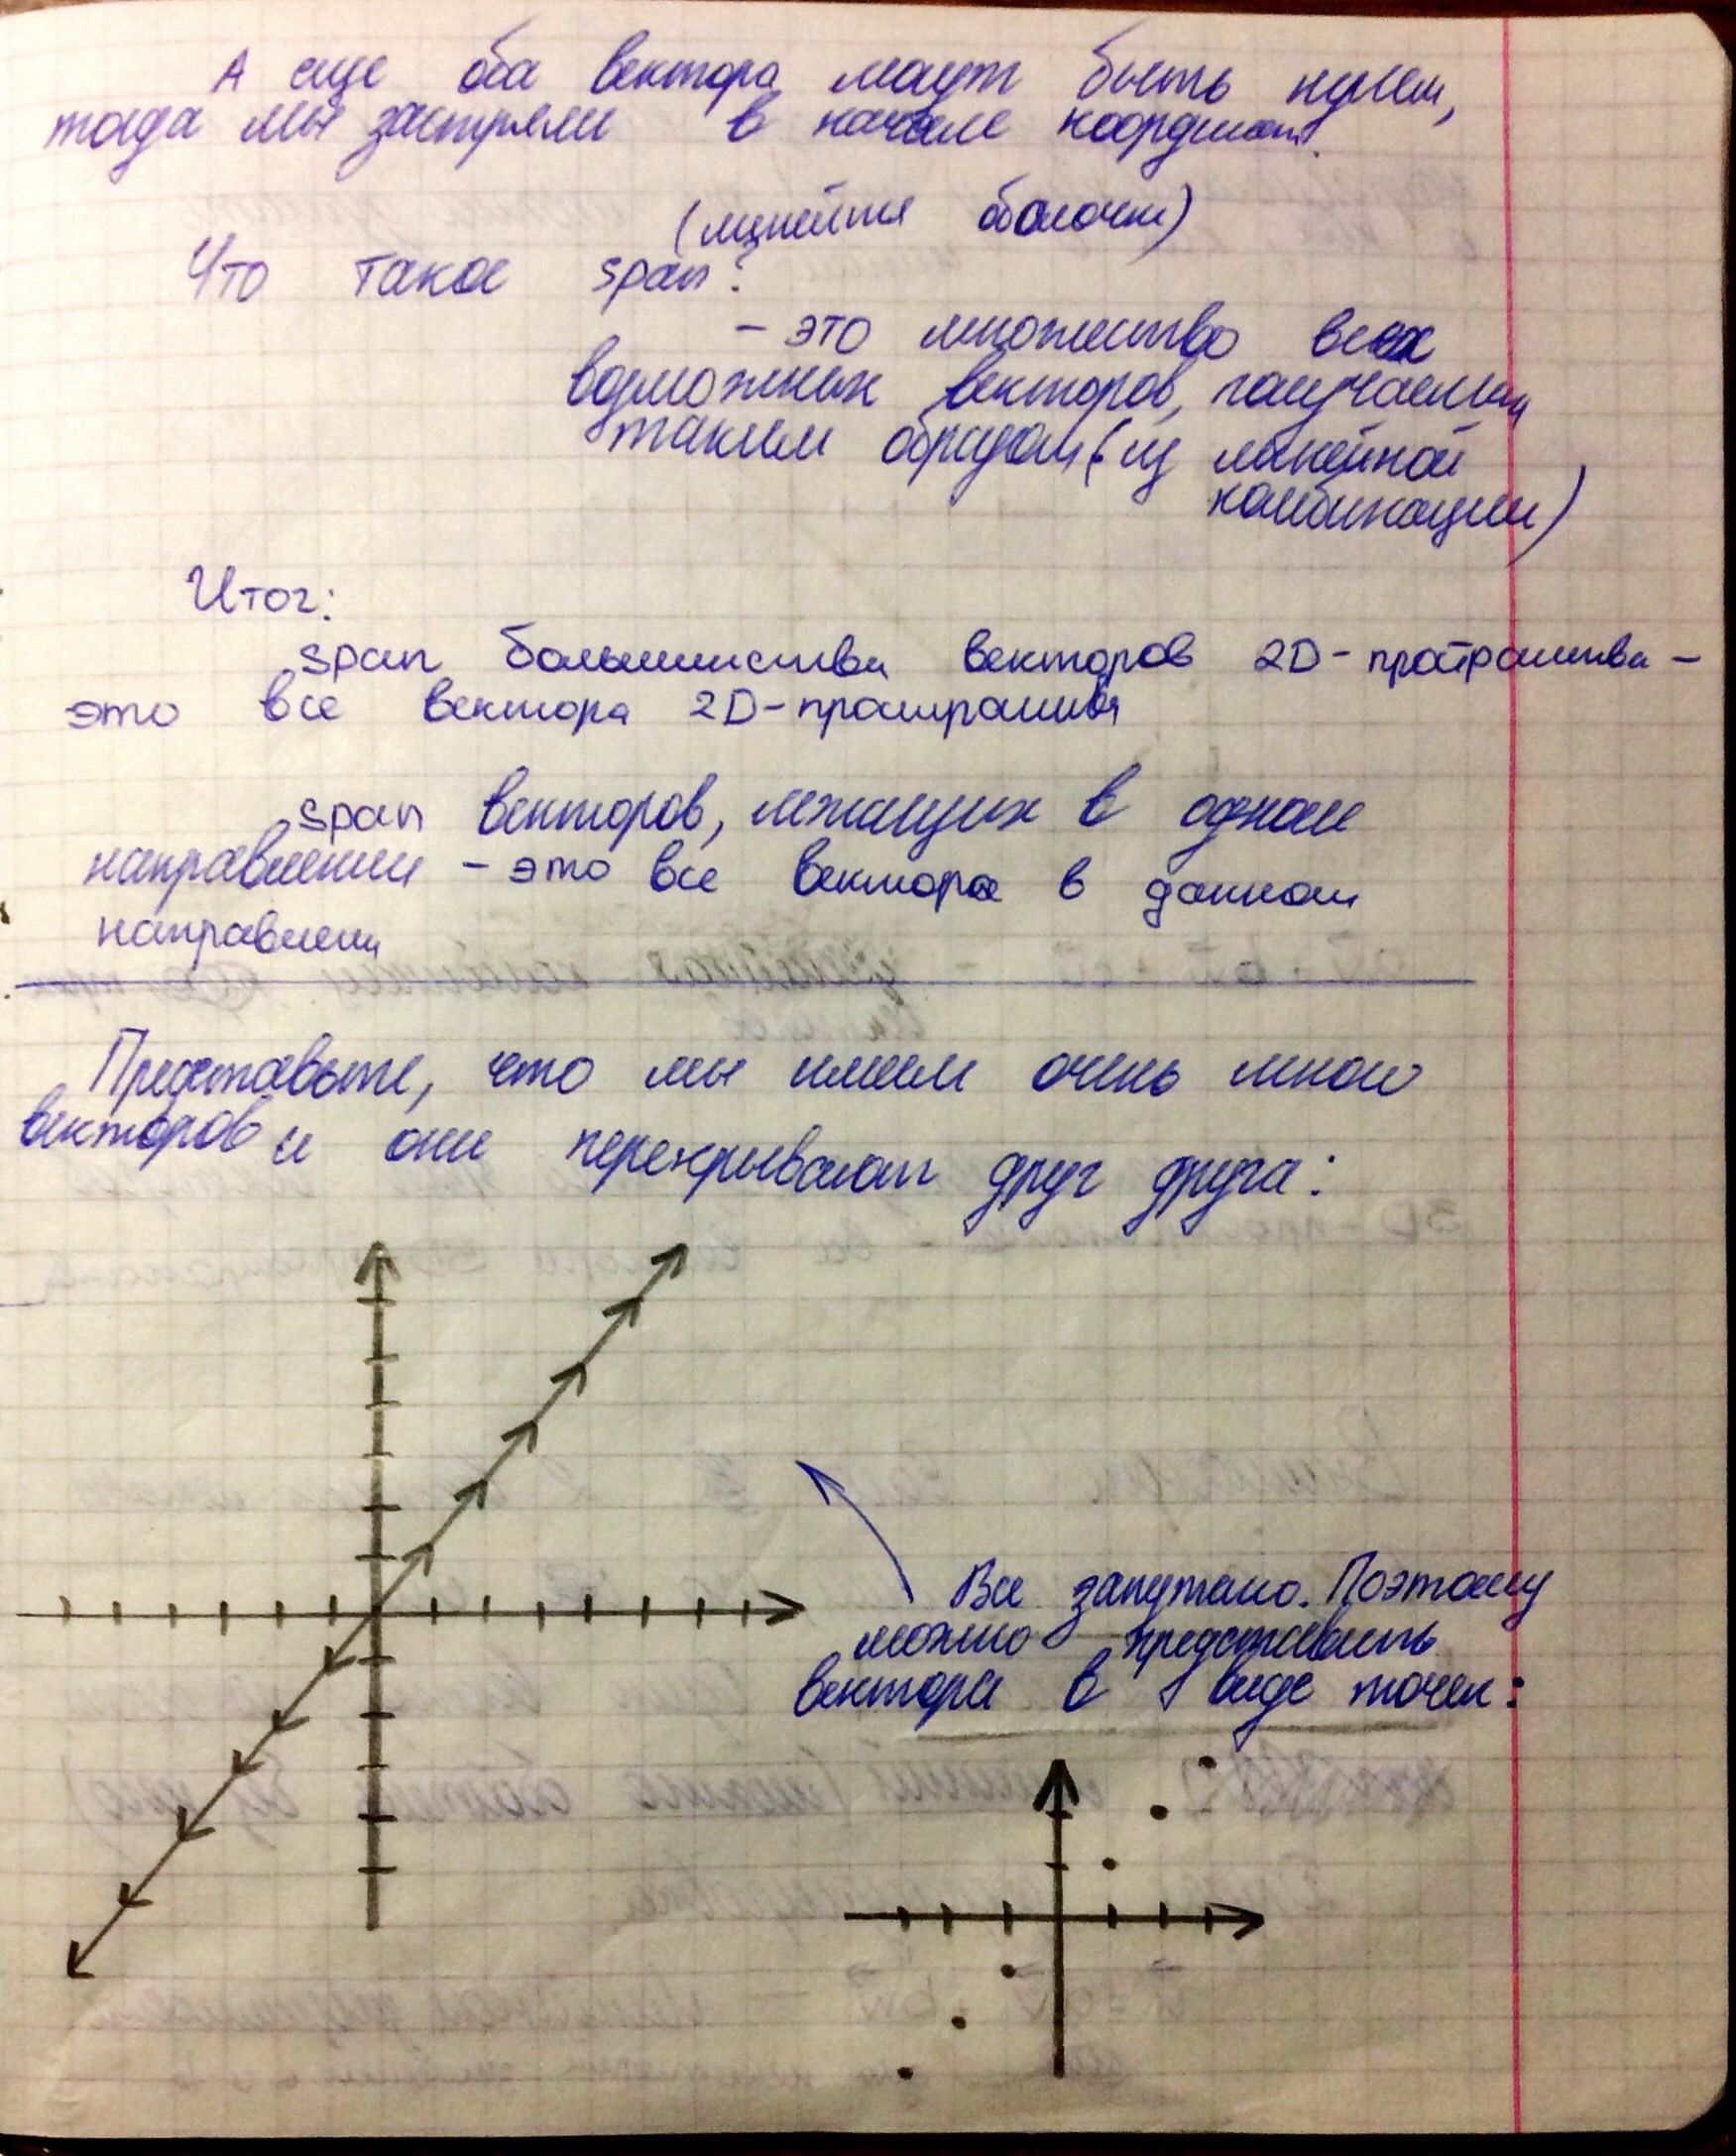 А еще оба вектора могут быть нулем,
тогда мы застряли в начале координат.
(линейная оболочка)
Что такое span?
- это множество всех
возможных векторов, получаемых
таким образом (из линейной
комбинации)
Итог:
span большинства векторов 2D-пространства -
это все вектора 2D-пространства
span векторов, лежащих в одном
направлении - это все вектора в данном
направлении
Представьте, что мы имеем очень много
векторов и они перекрывают друг друга:
Все запутано. Поэтому
можно представить
вектора в виде точек: